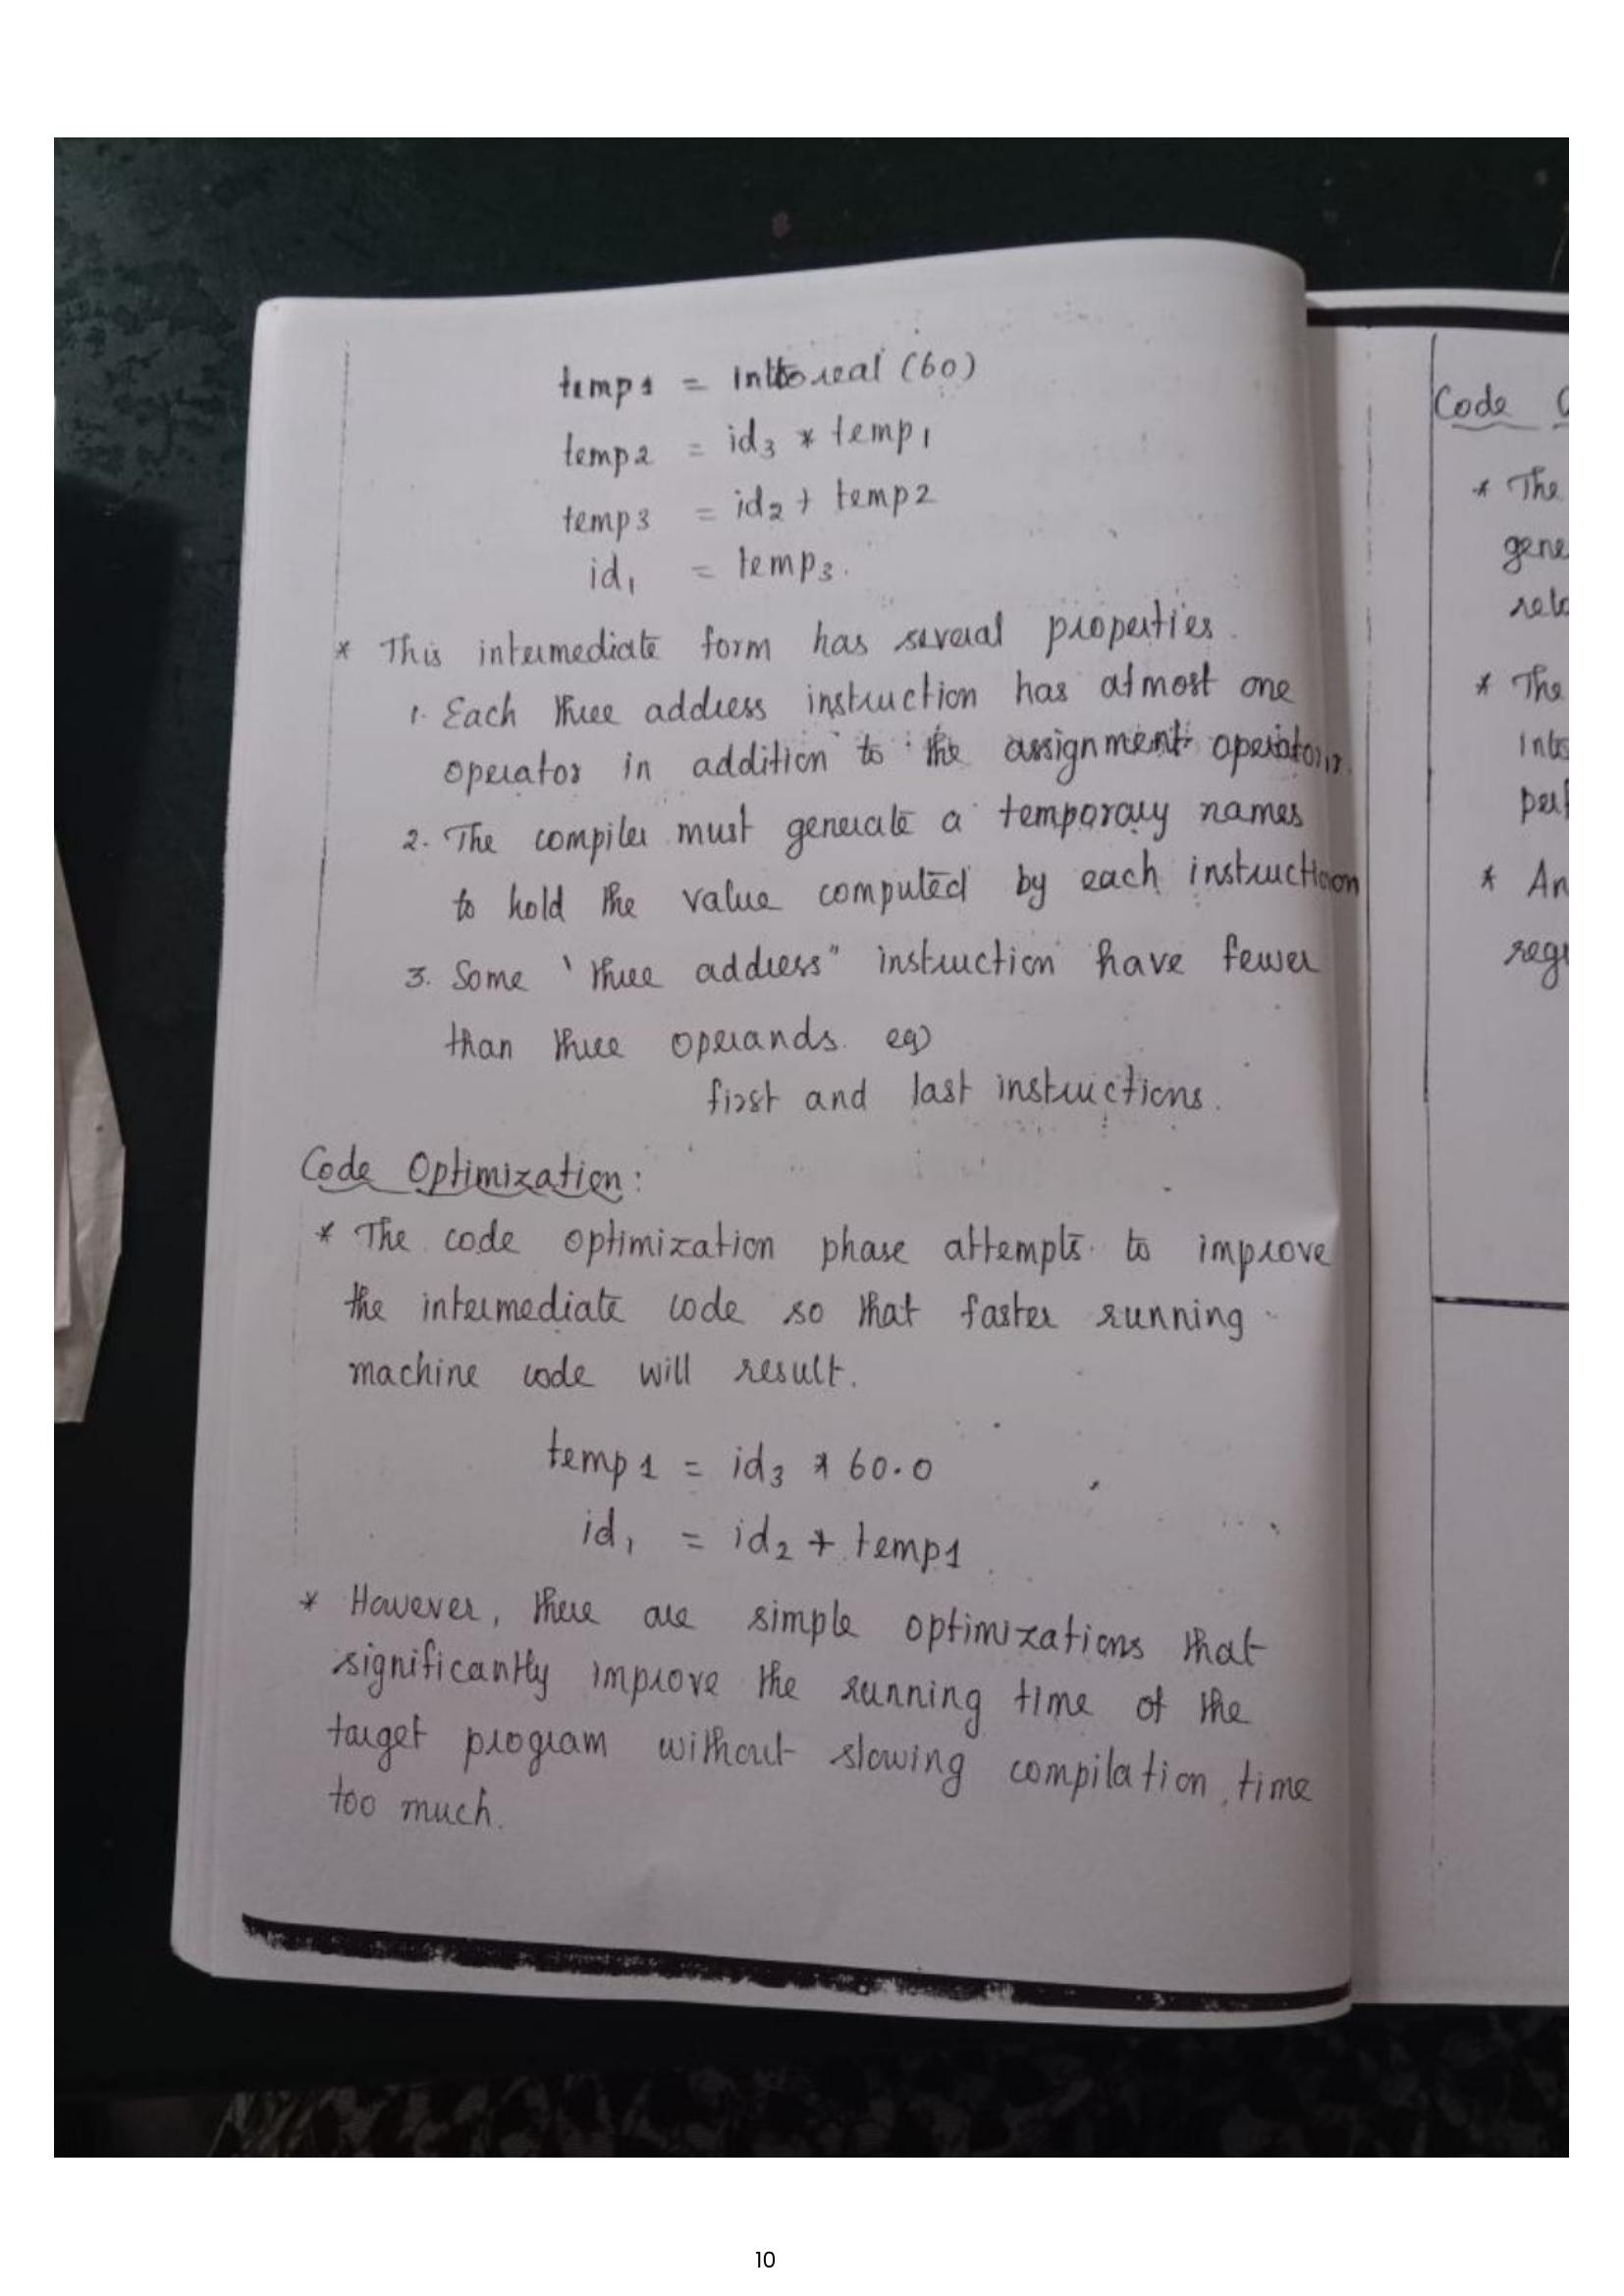 temp1 = inttoreal (60)
temp2 = id3 * temp1
temp3 = id2 + temp2
id1 = temp3.
* This intermediate form has several properties.
1. Each three address instruction has atmost one
operator in addition to the assignment operator.
2. The compiler must generate a temporary names
to hold the value computed by each instruction
3. Some ' three address" instruction have fewer
than three operands. eg)
first and last instructions.
Code Optimization:
* The code optimization phase attempts to improve
the intermediate code so that faster running
machine code will result.
temp1 = id3 * 60.0
id1 = id2 + temp1
* However, there are simple optimizations that
significantly improve the running time of the
target program without slowing compilation time
too much.
Code
* The
gene
rel
* The
into
per
* An
reg
10